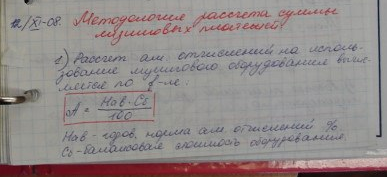 /XI-08. Методология рассчета суммы
лизинговых платежей.
Рассчет ам. отчислений на исполь-
зование оборудования вычис-
ляется по ф-ле:
A = Наб · Сб / 100
Наб - норма ам. отчислений %
Сб - балансовая стоимость оборудования.